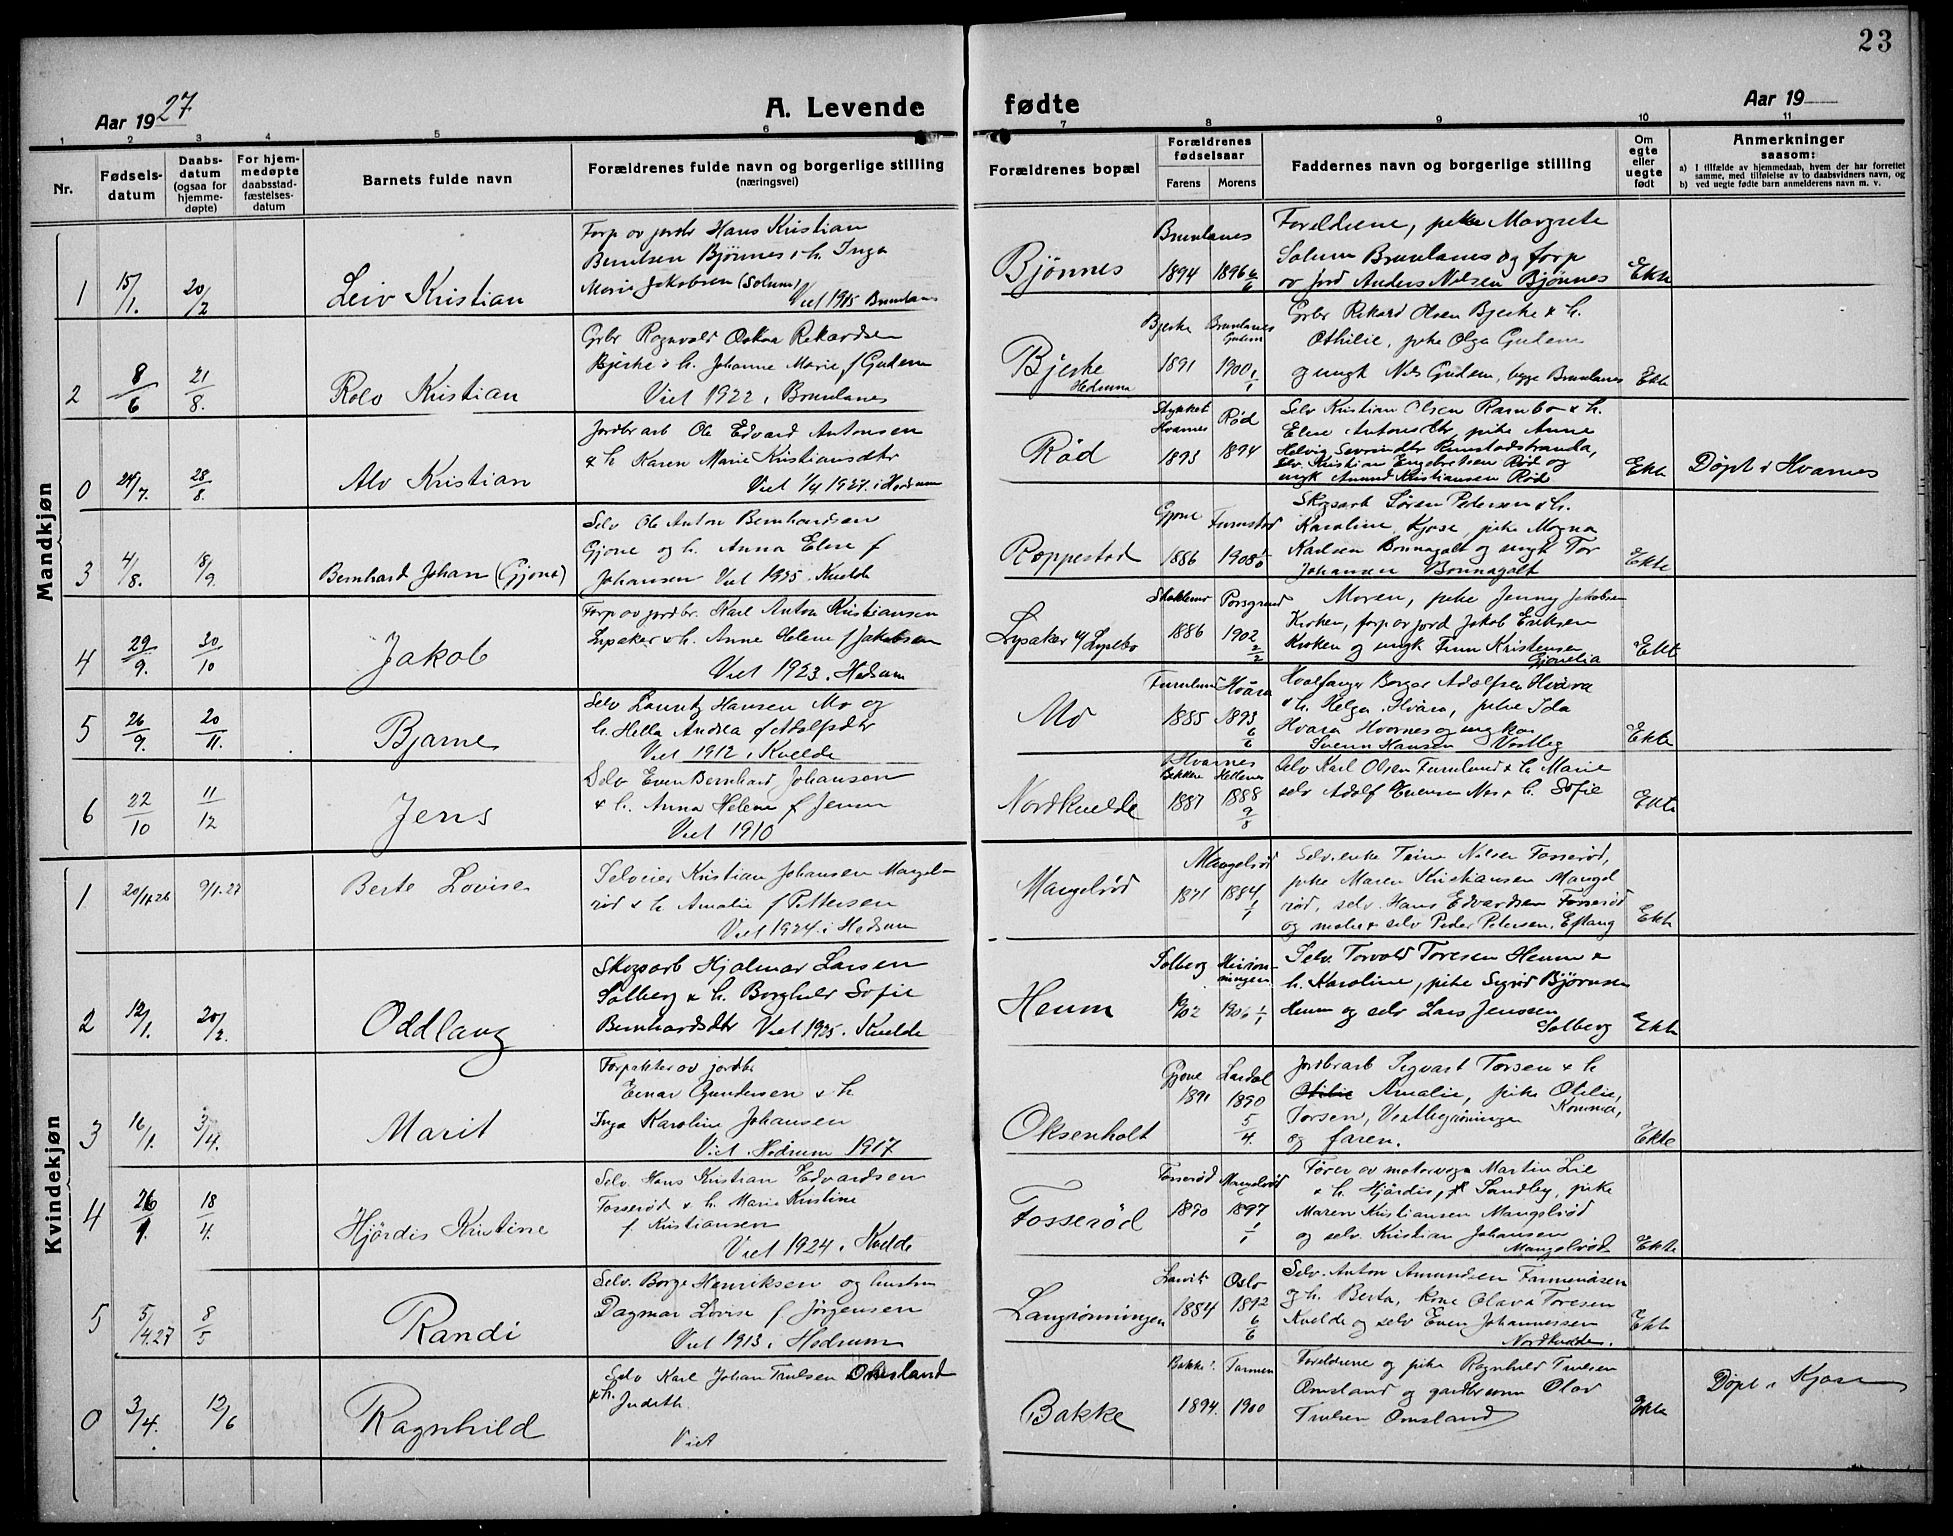 23
Aar 1927
A. Levende fødte
Aar 19
1 2 3 4 5 6 7 8 9 10 11
Nr.
Fødsels-
datum
Daabs-
datum
(ogsaa for
hjemme-
døpte)
For hjem-
medøpte
daabsstad-
fæstelses-
datum
Barnets fulde navn
Forældrenes fulde navn og borgerlige stilling
(næringsvei)
Forældrenes bopæl
Forældrenes
fødselsaar
Farens Morens
Faddernes navn og borgerlige stilling
Om
egte
eller
uegte
født
Anmerkninger
saasom:
a) I tilfælde av hjemmedaab, hvem der har forrettet
samme, med tilføielse av to daabsvidners navn, og
b) ved uegte fødte barn anmelderens navn m. v.
Mandkjøn
1 15/1. 20/2 Leiv Kristian
Forp av jordbr Hans Kristian
Berntsen Bjønnes & h. Inga
Marie Jakobsen (Solum)
Viet 1915 Brunlanes
Bjønnes
Brunlanes
1894 1896 6/6
Foreldrene, pike Margrete
Solum Brunlanes og forp
av jord Anders Nilsen Bjønnes
Ekte
2 8/6 21/8. Rolv Kristian
Grbr Ragnvald Oskar Rekardsen
Bjerke & h. Johanne Marie f Gudem
Viet 1922 i Brunlanes
Bjerke
Hedrum
Bjerke Brunlanes
Gudem
1891 1900 1/1
Grbr Rikard Olsen Bjerke & h.
Othilie, pike Olga Gudem
og ungk Nils Gudem, begge Brunlanes
Ekte
0 24/7. 28/8. Alv Kristian
Jordbr arb Ole Edvard Antonsen
& h Karen Marie Kristiansdtr
Viet 1/4 1927 i Hedrum
Rød
Stykket Rød
Hvarnes
1893 1894
Selv Kristian Olsen Rambo & h.
Elise Antonsdtr, pike Anne
Helvig Sevrindtr
selv. Kristian Engebretsen Rød og
ungk Amund Kristiansen Rød
Ekte
Døpt i Hvarnes
3 4/8. 18/9. Bernhard Johan (Gjone)
Selv Ole Anton Bernhardsen
Gjone og h. Anna Elise f
Johansen Viet 1925. Kvelde
Ræppestad
Gjone
1886 1908
Skogsarb Søren Pedersen & h.
Karoline Kjose, pike Magna
Karlsen Bonnagalt og ungk Tor
Johansen Bonnagalt
Ekte
4 29/9. 30/10 Jakob
Forp av jordbr. Karl Anton Kristiansen
Lysaker & h. Anne Helene f Jakobsen
Viet 1923. Hedrum
Lysaker
Porsgrund
1886 1902
2/2
Moren, pike Jenny Jakobsen
Kirken, forp av jord Jakob Eriksen
Kirken og ungk Finn Kristensen
Gjonelia
Ekte
5 26/9. 20/11. Bjarne
Selv Lauritz Hansen Mo og
h. Hella Andrea f Adolfsdtr
Viet 1912 i Kvelde
Mo
Furulund Hvåra
1885 1893
6/6
Hvalfanger Borger Adolfsen Hvåra
& h. Helga Hvåra, pike Ida
Hvåra Hvarnes og ungkar
Svenn Hansen Vestleg
Ekte
6 22/10 11/12 Jens
Selv Even Bernhard Johansen
& h. Anna Helene f Jensen
Viet 1910
Nordkvelde
Hvarnes
1887 1888
9/8
Selv Karl Olsen Furulund & h Marie
selv Adolf Evensen Nes & h. Sofie
Ekte
Kvindekjøn
1 20/11.26 9/1.27 Berte Lovise
Selveier Kristian Johansen Mangels-
rød & h Amalie f Pettersen
Viet 1924 i Hedrum
Mangelsrød
Mangelsrød
1871 1884
1/1
Selv.enke Trine Nilsen Fosserød,
pike Maren Kristiansen Mangel
rød, selv. Hans Edvardsen Fosserød
og maler & selv Peder Petersen, Eftang
Ekte
2 12/1. 20/2. Oddlaug
Skogsarb Hjalmar Larsen
Solberg & h. Borghild Sofie
Bernhardsdtr Viet 1925. Kvelde
Heum
Solberg
1902 1906 1/1
Selv. Torvald Toresen Heum &
h. Karoline, pike Sigrid Bjørnsen
Heum og selv Lars Jenssen
Solberg
Ekte
3 16/1. 3/4. Marit
Forpakter av jordbr
Einar Gundersen & h
Inga Karoline Johansen
Viet. Hedrum 1917
Oksenholt
Gjone Lardal
1891 1890
5/4.
Jordbrarb Sigvart Torsen & h
Otilie Amalie, pike Otilie,
Torsen, Vestlegrønningen
og faren.
Ekte
4 26/1. 18/4. Hjördis Kristine
Selv. Hans Kristian Edvardsen
Fosserød & h. Marie Kristine
f Kristiansen
Viet 1924. Kvelde
Fosserød
Fosserød Mangelsrød
1890 1897
1/1
Fører av motorvogn Martin Lie
& h. Hjördis, f Sandby, pike
Maren Kristiansen Mangelsrød
og selv. Kristian Johansen
Mangelsrød
Ekte
5 5/4.27 8/5 Randi
Selv. Borge Henriksen og hustru
Dagmar Lovise f. Jørgensen
Viet 1913. Hedrum
Langrønningen
Larvik Oslo
1884 1892
6/6
Selv. Anton Amundsen Farmenåsen
& h. Berta, kone Olava Toresen
Kvelde og selv Even Johannessen
Nordkvelde.
Ekte
0 3/4. 12/6 Ragnhild
Selv Karl Johan Trulsen Omsland
& h. Judith.
Viet
Bakke
Bakke Farmen
1894. 1900
Foreldrene og pike Ragnhild Trulsen
Omsland og gardbr.sønn Olav
Trulsen Omsland
Ekte
Døpt i Kjose